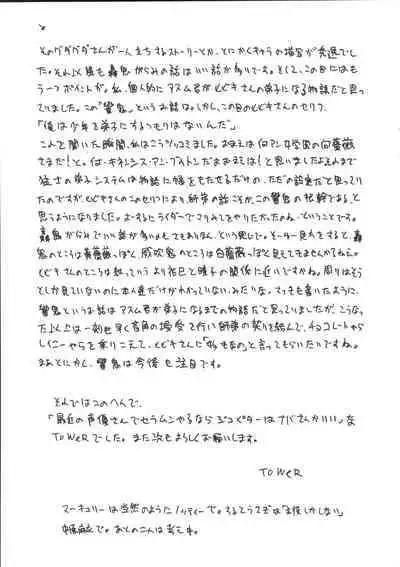 そのグダグダさんがーんえちするストーリーとか、とにかくキャラの描写が秀逸でし
た。それ以後も轟鬼がらみの話はいい話が多いです。そして、この日にはも
う一つポイントが。私、個人的にアスム君がヒビキさんの弟子になる物語だと思っ
ていました。この「響鬼」というお話は。しかし、この日のヒビキさんのセリフ、
「俺は少年を弟子にするつもりはないんだ」
これを聞いた瞬間、私はこうツッコミました。おまえは何アン女学園の白薔薇
さまだ!と。何・ギネンシス・アン・ブゥトンだおまえは!と思いましたよ。それまで
猛士の弟子システムは物語に幅をもたせるだけの、ただの設定だと思ってい
たのですが、ヒビキさんのこのセリフにより、師弟の話こそが、この響鬼の根幹である、と
思うようになりました。ようするにライダーでマリみてをやりたかったのね、ということです。
轟鬼がらみでいい話が多いもてもありまん、という感じで。そーゆー見方をすると、轟
鬼のところは黄薔薇っぽく、威吹鬼のところは白薔薇っぽく見えてきませんかてねぇ。
ヒビキさんのところは紅っていうより祐巳と瞳子の関係に近いですかね。周りはそう
としか見ていないのに本人達だけがわかっていない、みたいな。さっきも書いたように、
響鬼というお話はアスム君が弟子になるまでの物語だと思っていましたが、こうなっ
た以上は一刻も早く音角の授受を行い師弟の契りを結んで、チョコレートやら
レイニーやらを乗りこえて、ヒビキさんに「
」と言ってもらいたいですね。
まあとにかく、響鬼は今後も注目です。
それではこのへんで。
「最近の声優さんでセラムンやるならジュピターは
さんがいい」な
TOWERでした。また次もよろしくお願いします。
TOWER
マーキュリーは当然のように
で。するとうさぎは「
しかしない」
で。あとの二人は考え中。